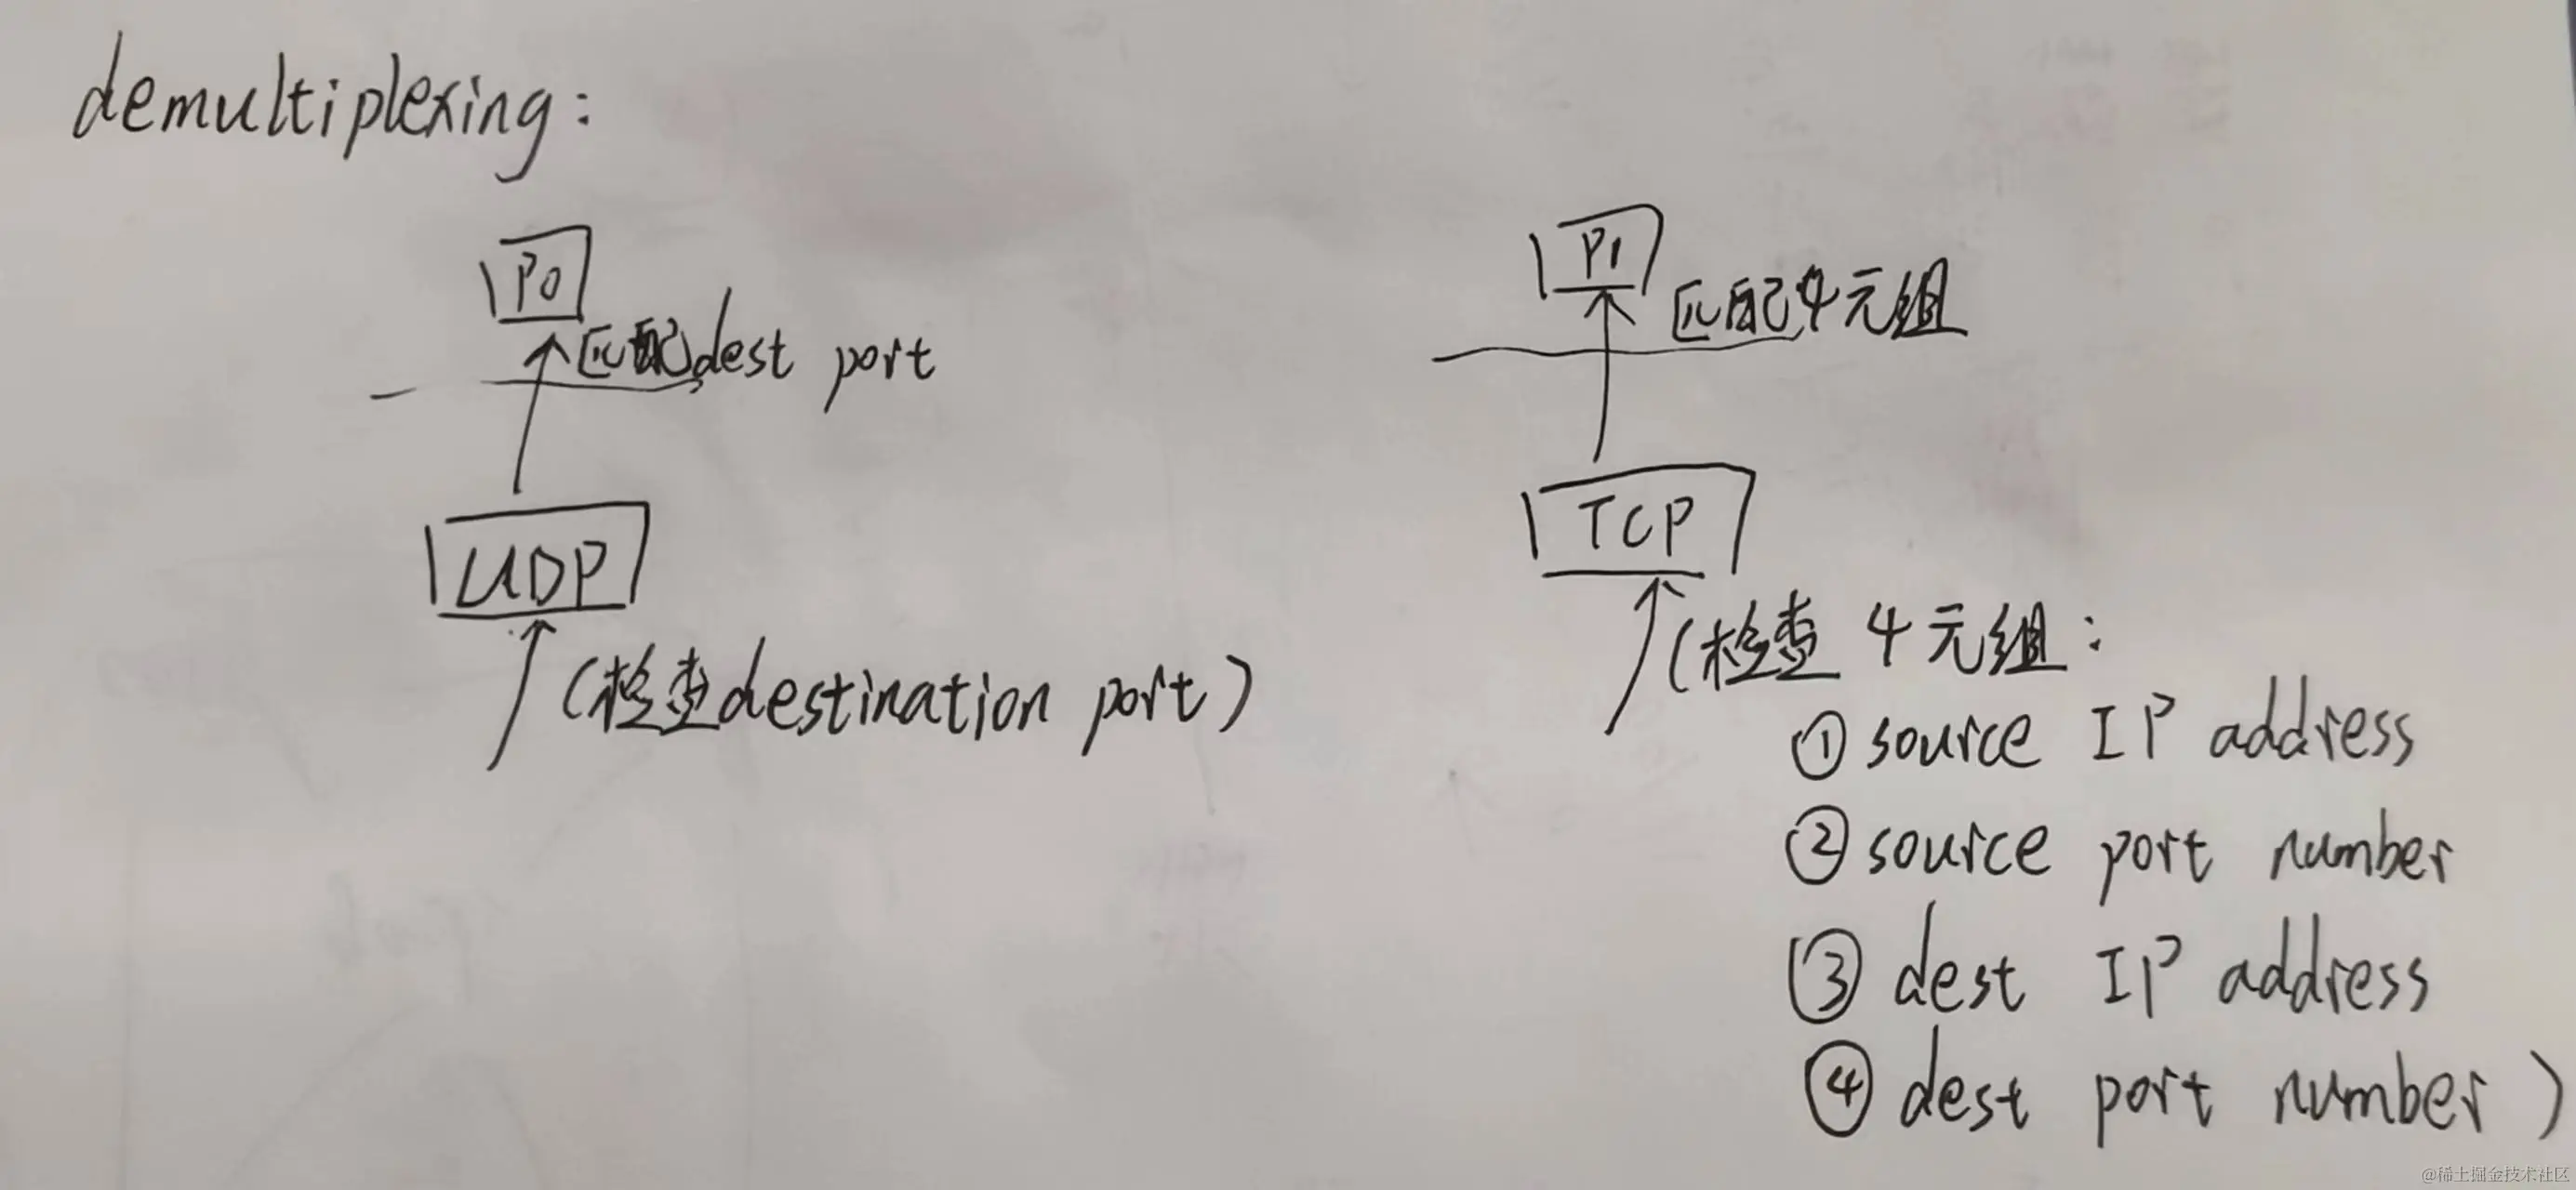 demultiplexing:
P0
匹配dest port
UDP
(检查destination port)
P1
匹配4元组
TCP
(检查 4元组:
① source IP address
② source port number
③ dest IP address
④ dest port number)
@稀土掘金技术社区